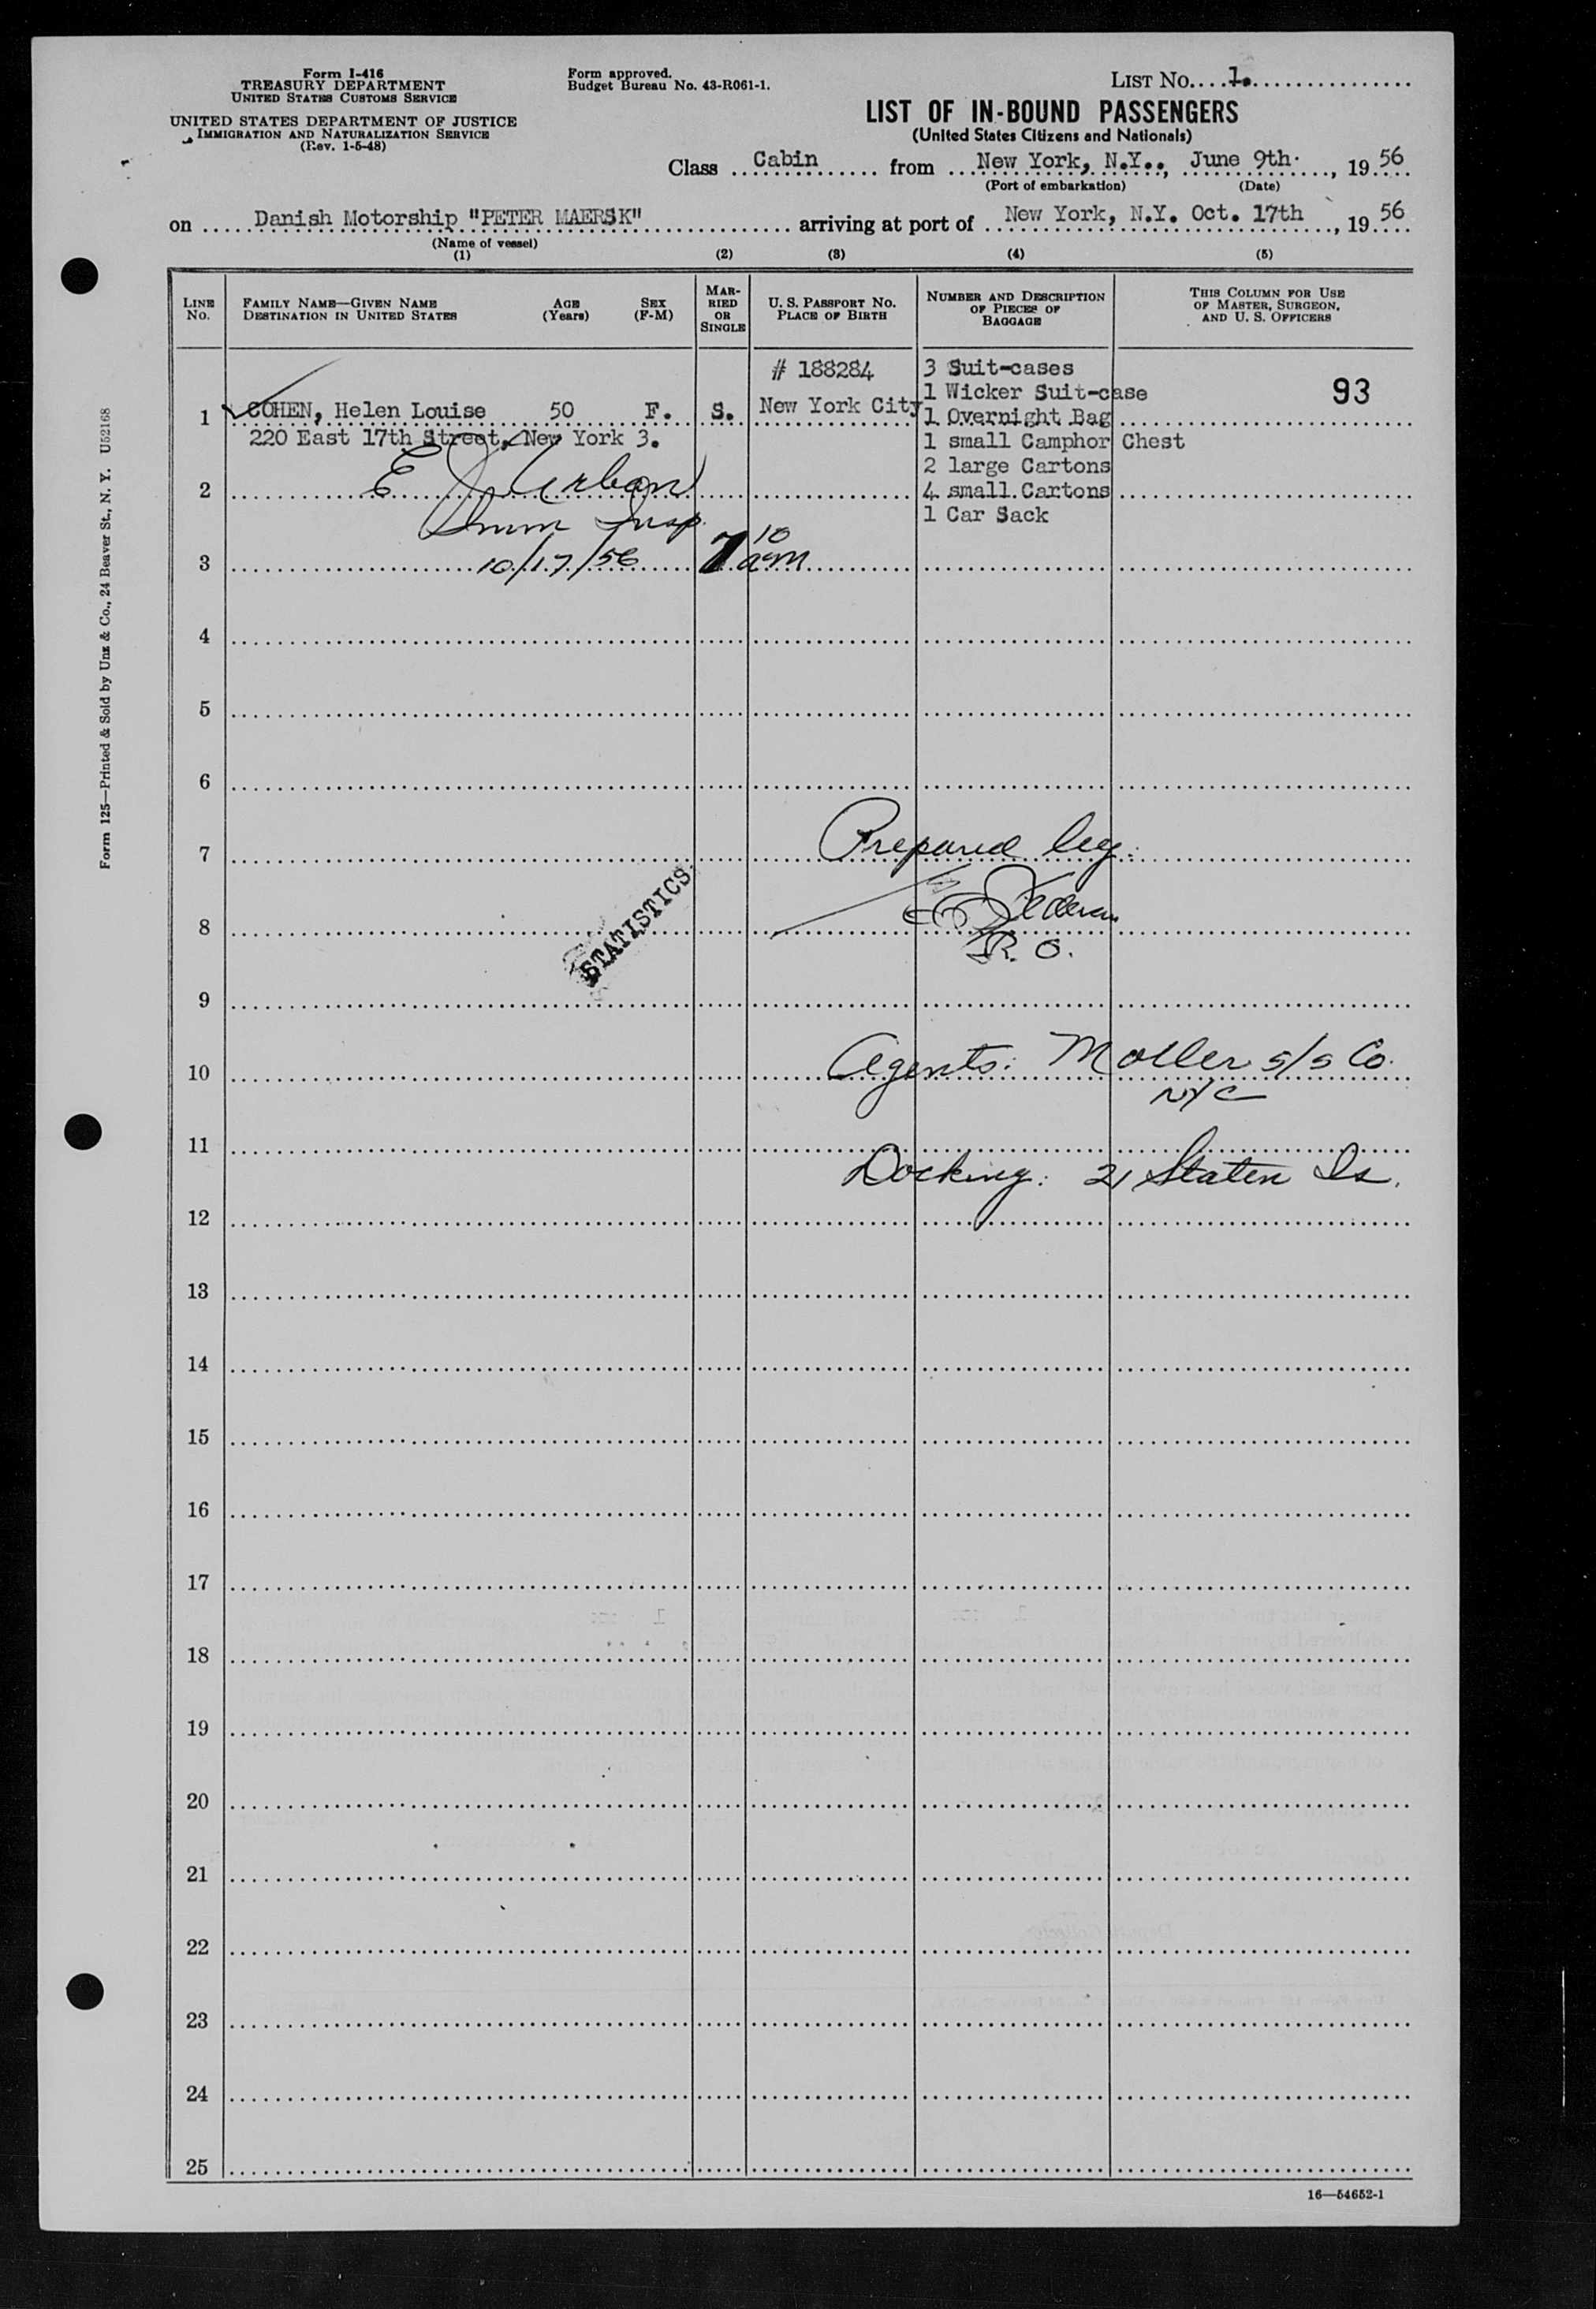 Form I-416
TREASURY DEPARTMENT
UNITED STATES CUSTOMS SERVICE
UNITED STATES DEPARTMENT OF JUSTICE
IMMIGRATION AND NATURALIZATION SERVICE
(Rev. 1-5-48)
Form approved.
Budget Bureau No. 43-R061-1.
LIST No. 1.
LIST OF IN-BOUND PASSENGERS
(United States Citizens and Nationals)
Class Cabin from New York, N.Y., June 9th, 19 56
(Port of embarkation) (Date)
on Danish Motorship "PETER MAERSK" arriving at port of New York, N.Y. Oct. 17th, 19 56
(Name of vessel)
(1) (2) (3) (4) (5)
LINE No. FAMILY NAME—GIVEN NAME DESTINATION IN UNITED STATES AGE (Years) SEX (F-M) MARRIED OR SINGLE U. S. PASSPORT No. PLACE OF BIRTH NUMBER AND DESCRIPTION OF PIECES OF BAGGAGE THIS COLUMN FOR USE OF MASTER, SURGEON, AND U. S. OFFICERS
# 188284 3 Suit-cases
1 Wicker Suit-case 93
1 COHEN, Helen Louise 50 F. S. New York City 1 Overnight Bag
220 East 17th Street, New York 3. 1 small Camphor Chest
2 large Cartons
2 E J Urban 4 small Cartons
Imm Insp. 1 Car Sack
3 10/17/56 7 10 am
4
5
6
7 Prepared by:
STATISTICS
8
R. O.
9
10 Agents: Moller s/s Co.
NYC
11
Docking: 21 Staten Is.
12
13
14
15
16
17
18
19
20
21
22
23
24
25
16—54652-1
Form 125—Printed & Sold by Unz & Co., 24 Beaver St., N. Y. U52168